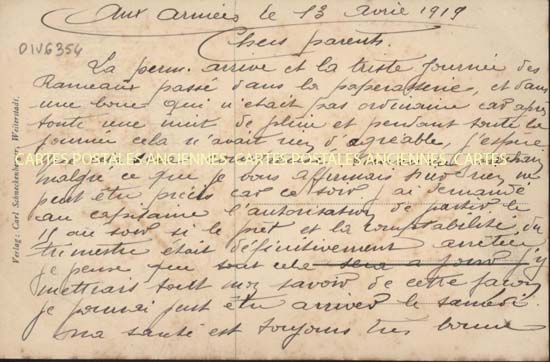 Aux armées le 13 Avril 1919
Chers parents.
DIV6354
La perm. arrive et la triste journée des
Rameaux passé dans la paperasserie, et dans
une boue qui n'était pas ordinaire car après
toute une nuit de pluie et pendant toute la
journée cela n'avait rien d'agréable, j'espère
CARTES POSTALES ANCIENNES CARTES POSTALES ANCIENNES CARTES POSTALES ANCIENNES
malgré ce que je vous affirmais hier rien ne
peut être précis car ce soir j'ai demandé
au capitaine l'autorisation de partir le
au soir si le prêt et la comptabilité du
trimestre était définitivement arrêtée
je pense que tout cela sera à jour j'y
mettrais tout mon savoir de cette façon
je pourrai peut être arriver le samedi.
ma santé est toujours très bonne
Verlag: Carl Schneckenburger, Weiterstadt.